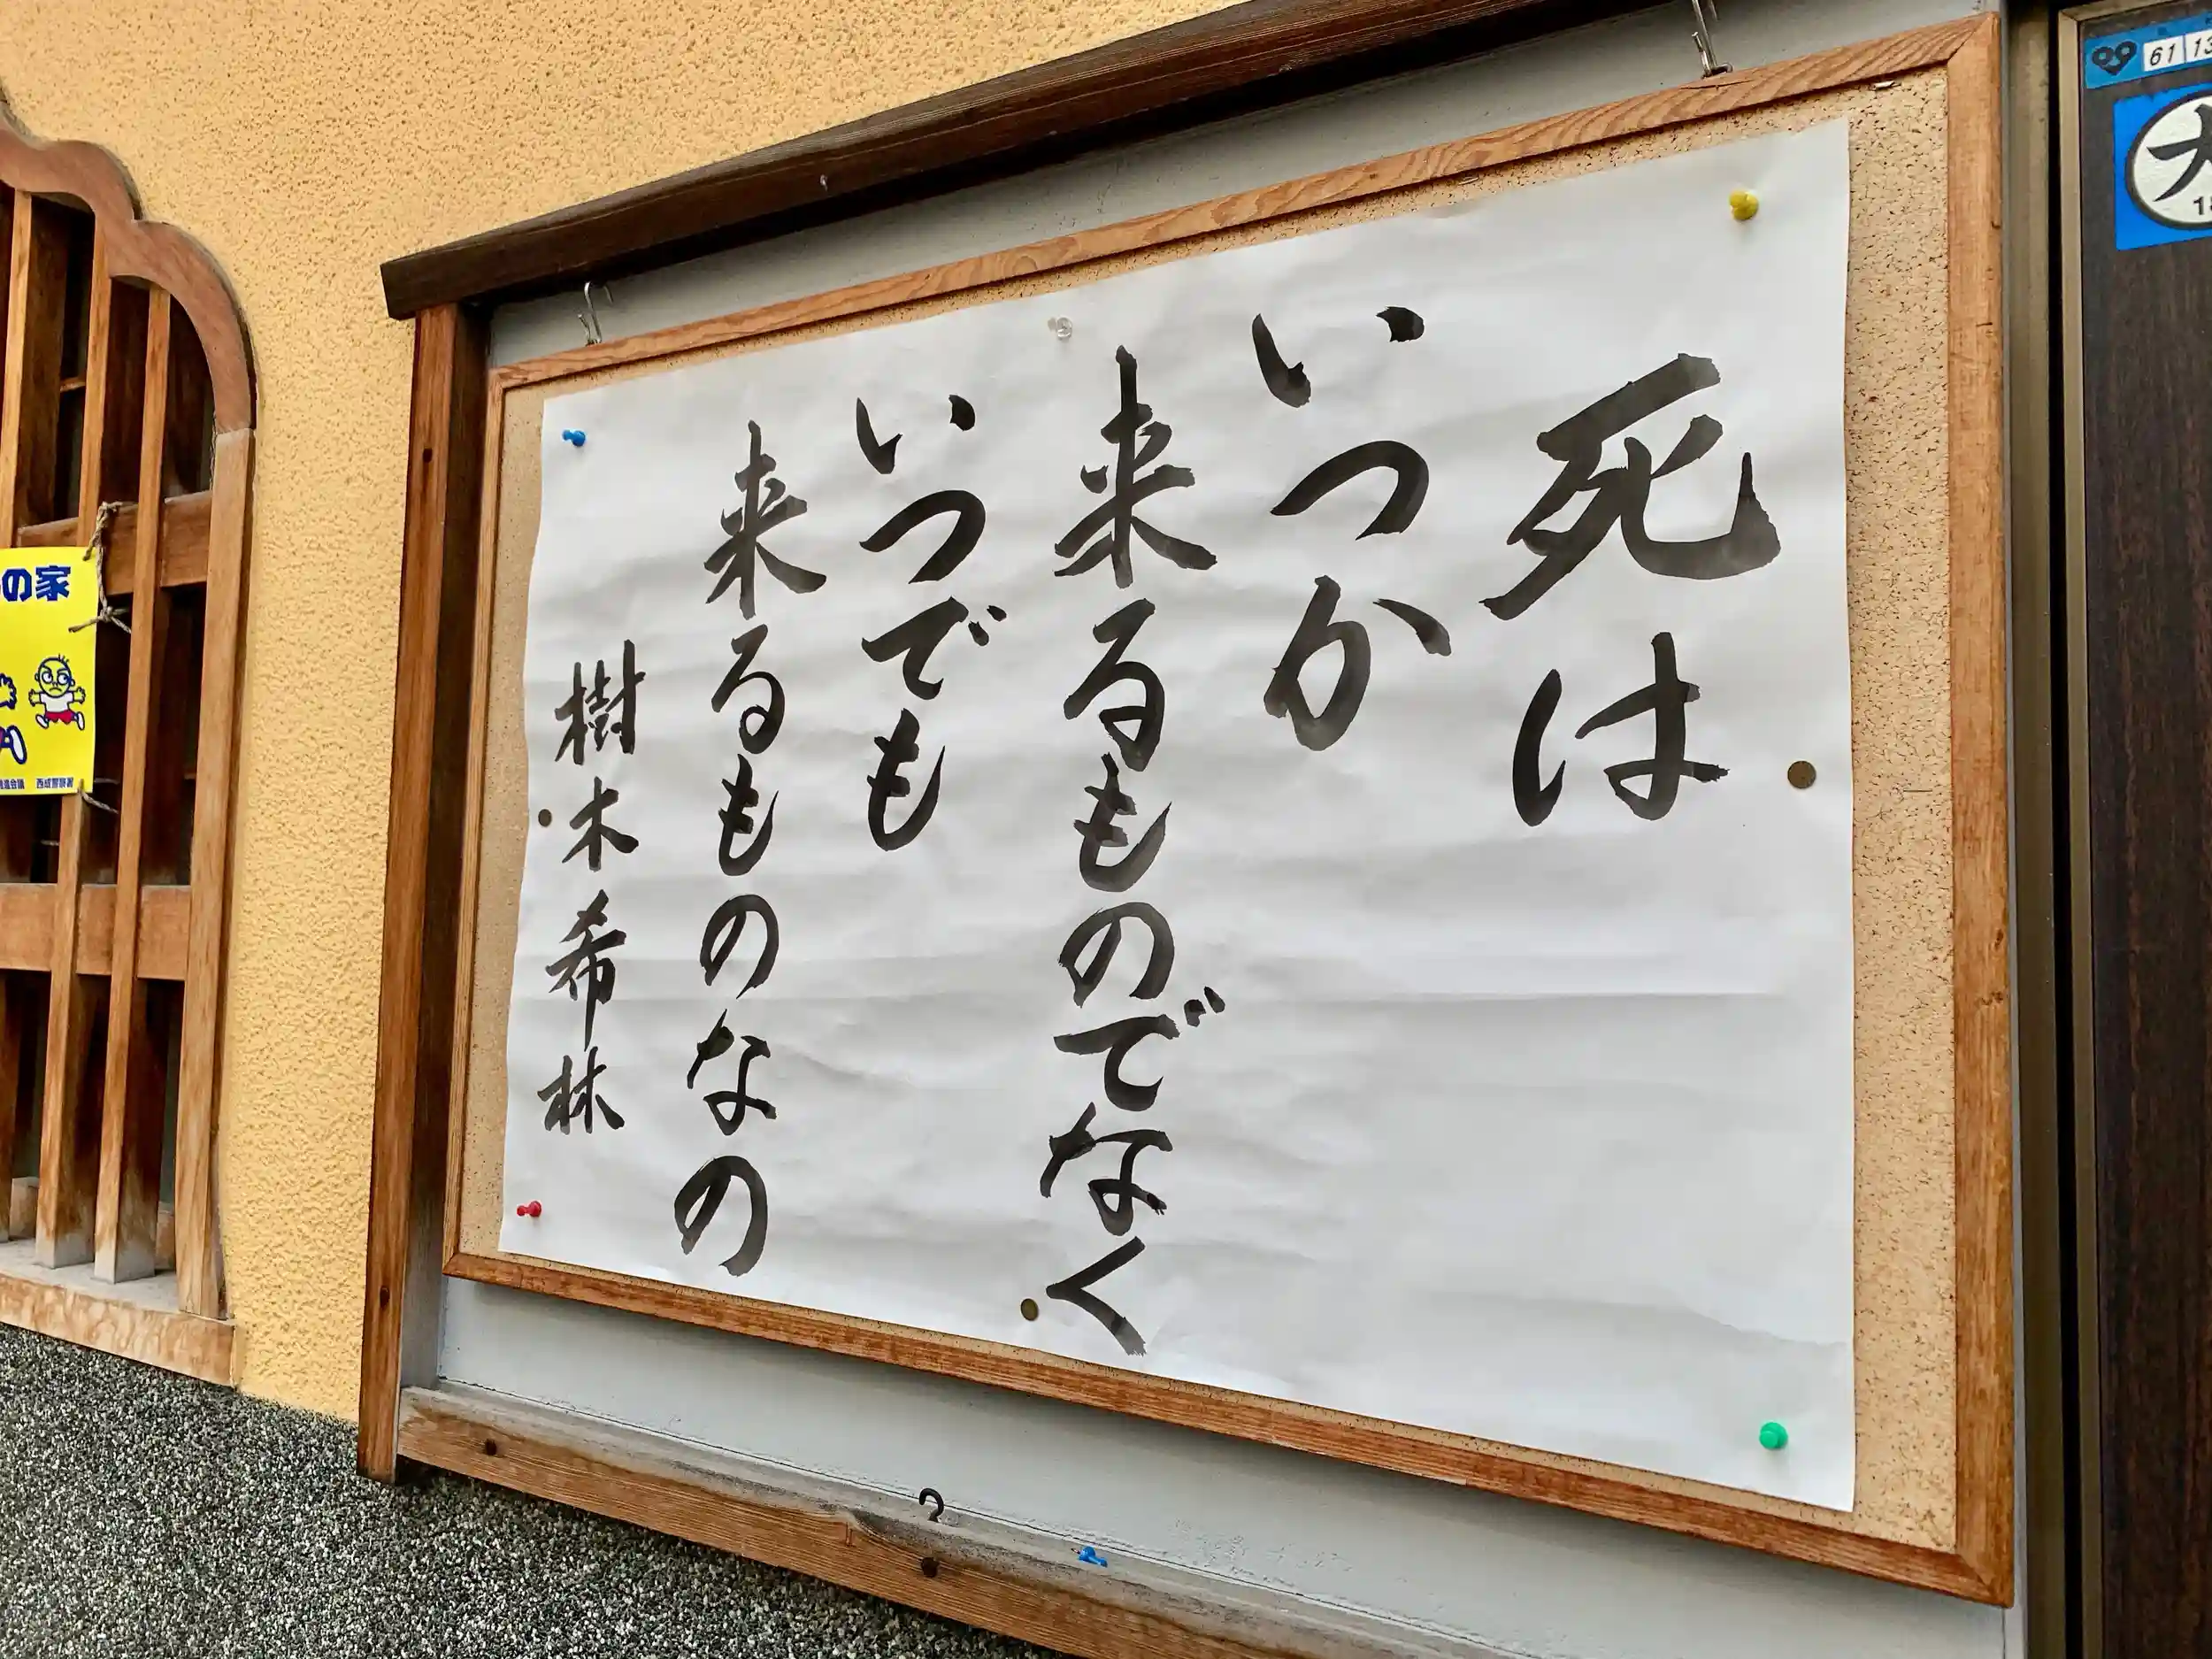 死は
いつか
来るものでなく
いつでも
来るものなの
樹木希林
の家
西成警察署
61 13